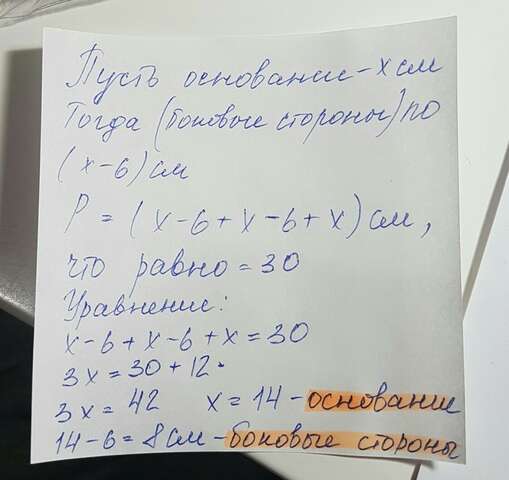 Пусть основание - х см
Тогда (боковые стороны) по
(х-6) см
Р = (х-6+х-6+х) см,
что равно = 30
Уравнение:
х-6+х-6+х=30
3х = 30+12.
3х = 42 х = 14 - основание
14-6 = 8 см - боковые стороны